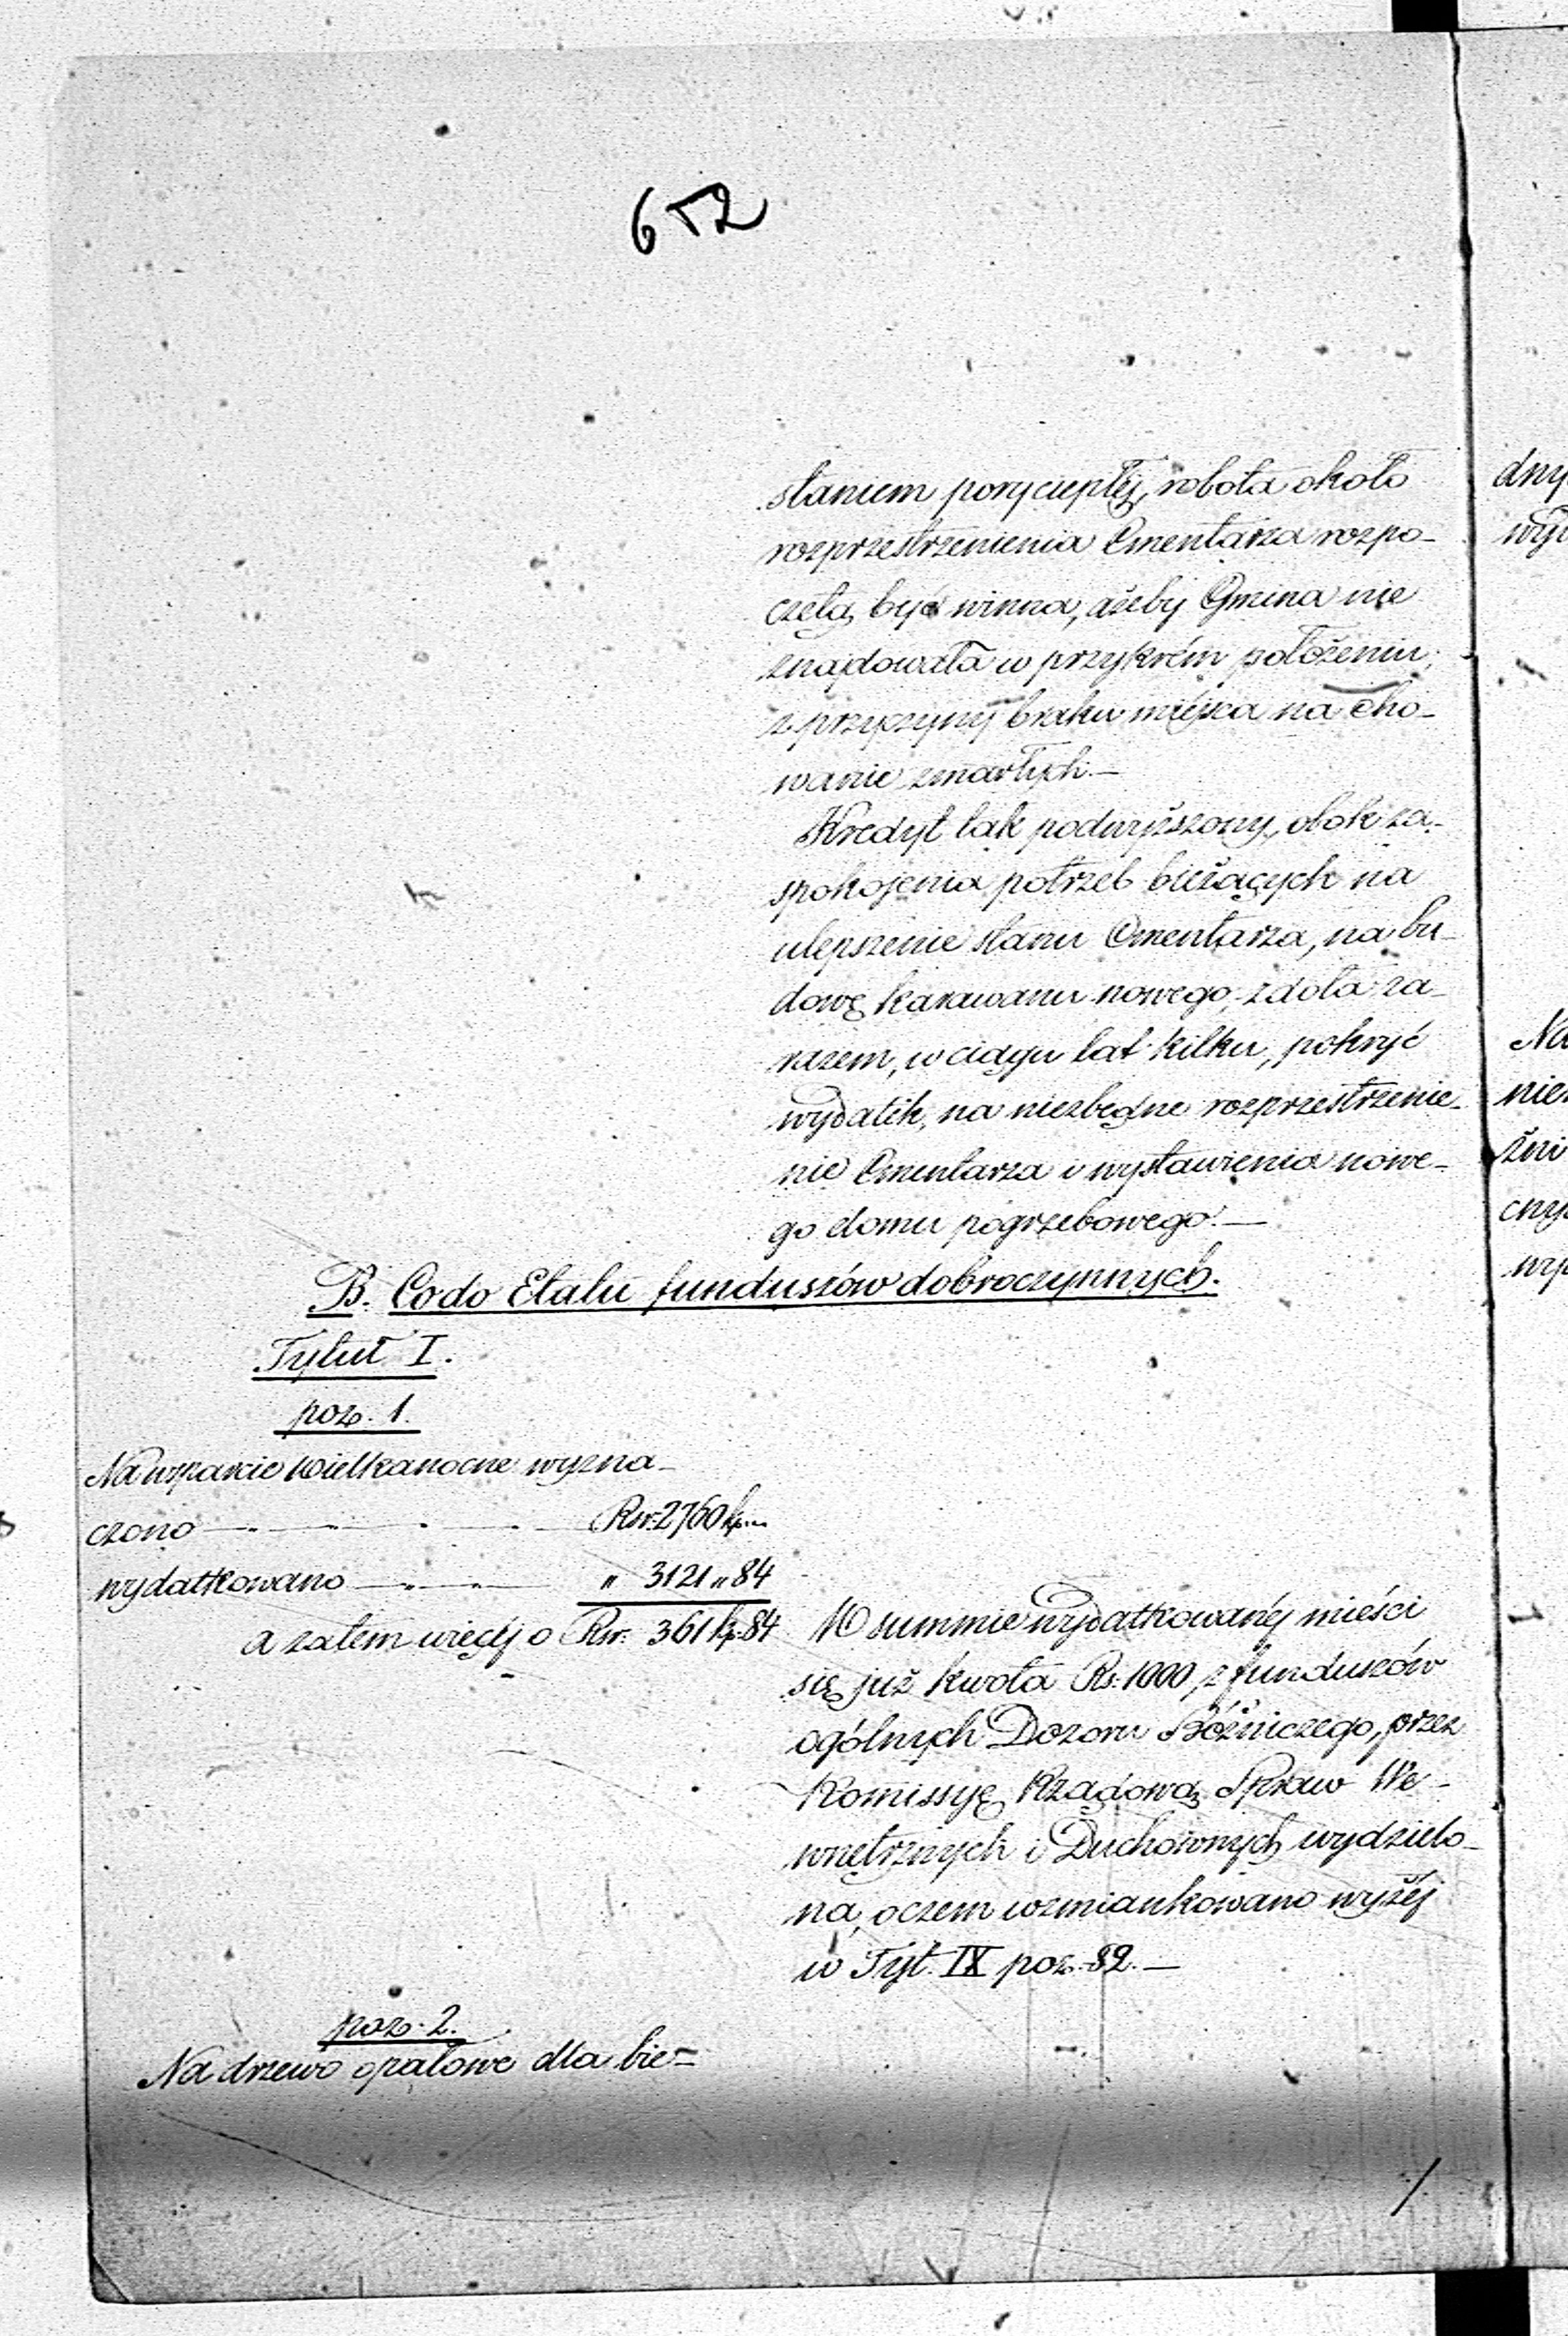 652
staniem pory ciepłéj, robota około
rozprzestrzenienia Cmentarza rozpo-
czętą być winna, ażeby Gmina nie
znajdowała w przykrém położeniu,
z przyczyny braku miejsca na cho-
wanie zmarłych.—
Kredyt tak podwyższony, obok za-
spokojenia potrzeb bieżących na
ulepszenie stanu Cmentarza, na bu-
dowę karawanu nowego, zdoła za-
razem, w ciągu lat kilku, pokryć
wydatek, na niezbędne rozprzestrzenie-
nie Cmentarza i wystawienia nowe-
go domu pogrzebowego.—
B. Co do Etatu funduszów dobroczynnych.
Tytuł I.
poz. 1.
Na wsparcie Wielkanocne wyzna-
czono Rsr. 2760 kp. „
wydatkowano „ 3121 „ 84
a zatem więcéj o Rsr. 361 kp. 84
W summie wydatkowanéj mieści
się już kwota Rs. 1000, z funduszów
ogólnych Dozoru Bóżniczego, przez
Komissyę Rządową Spraw We-
wnętrznych i Duchownych wydzielo-
na, o czem wzmiankowano wyżéj
w Tyt. IX poz. 82.—
poz. 2.
Na drzewo opałowe dla bie-
dny
wyd
Na
nie
żni
cny
wy